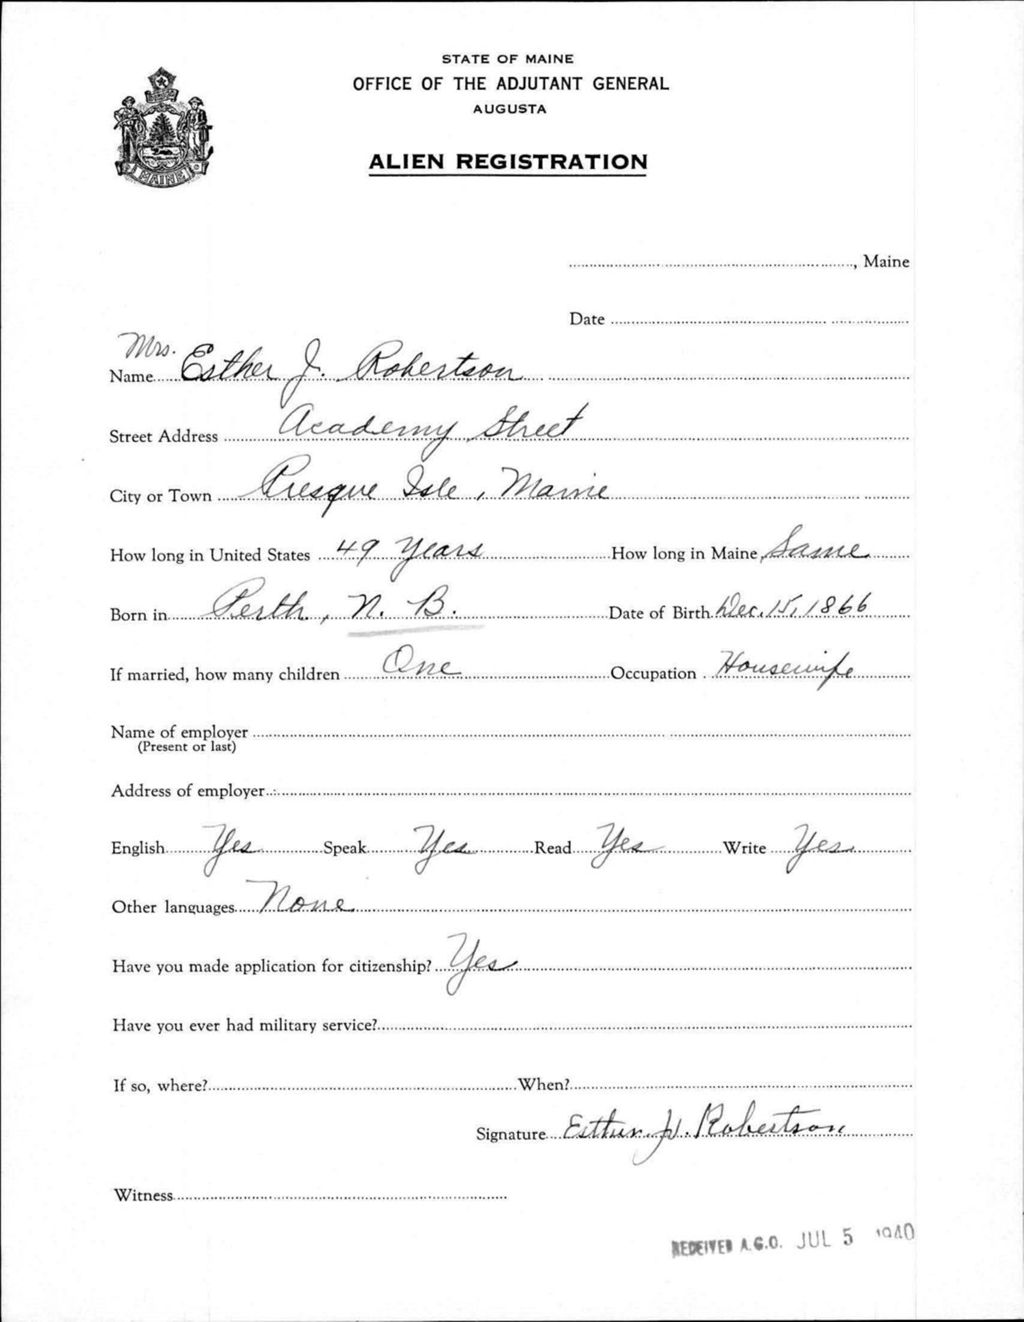 STATE OF MAINE
OFFICE OF THE ADJUTANT GENERAL
AUGUSTA
ALIEN REGISTRATION
MAINE
, Maine
Date
Mrs.
Name Esther J. Robertson
Street Address Academy Street
City or Town Presque Isle, Maine
How long in United States 49 Years How long in Maine Same
Born in Perth, N. B. Date of Birth Dec. 15, 1866
If married, how many children One Occupation Housewife
Name of employer
(Present or last)
Address of employer
English Yes Speak Yes Read Yes Write Yes
Other languages None
Have you made application for citizenship? Yes
Have you ever had military service?
If so, where? When?
Signature Esther J. Robertson
Witness
RECEIVED A.G.O. JUL 5 1940